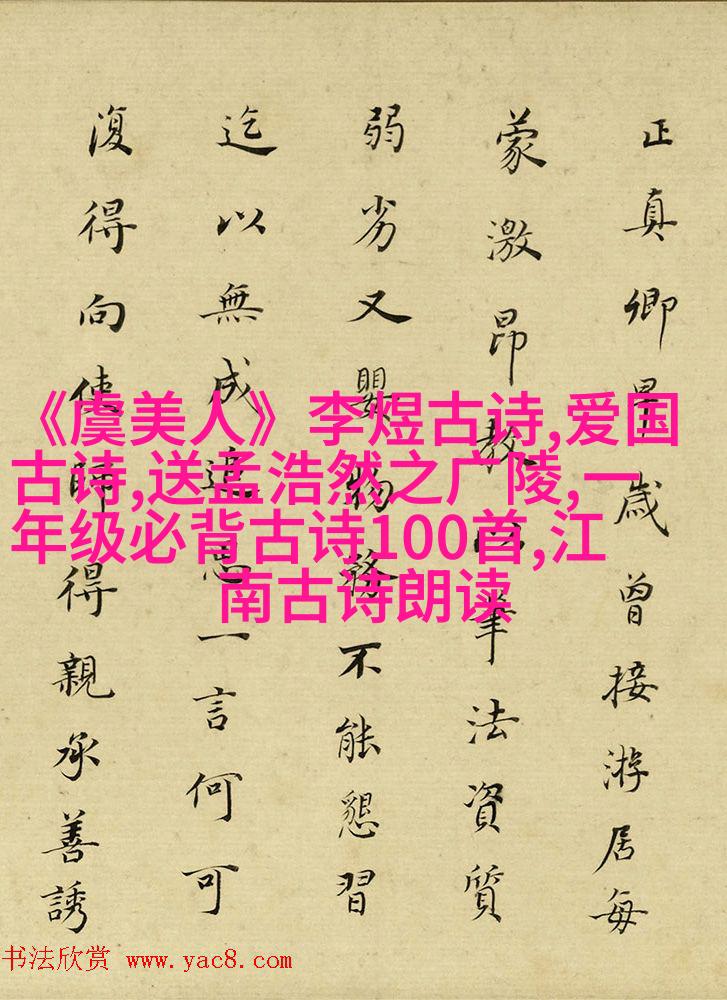 正真卿早歲曾接游居每
蒙激昂教以筆法資質
弱劣又嬰物務不能懇習
迄以無成追思一言何可
復得向使師得親承善誘
《虞美人》李煜古诗,爱国
古诗,送孟浩然之广陵,一
年级必背古诗100首,江
南古诗朗读
书法欣赏 www.yac8.com